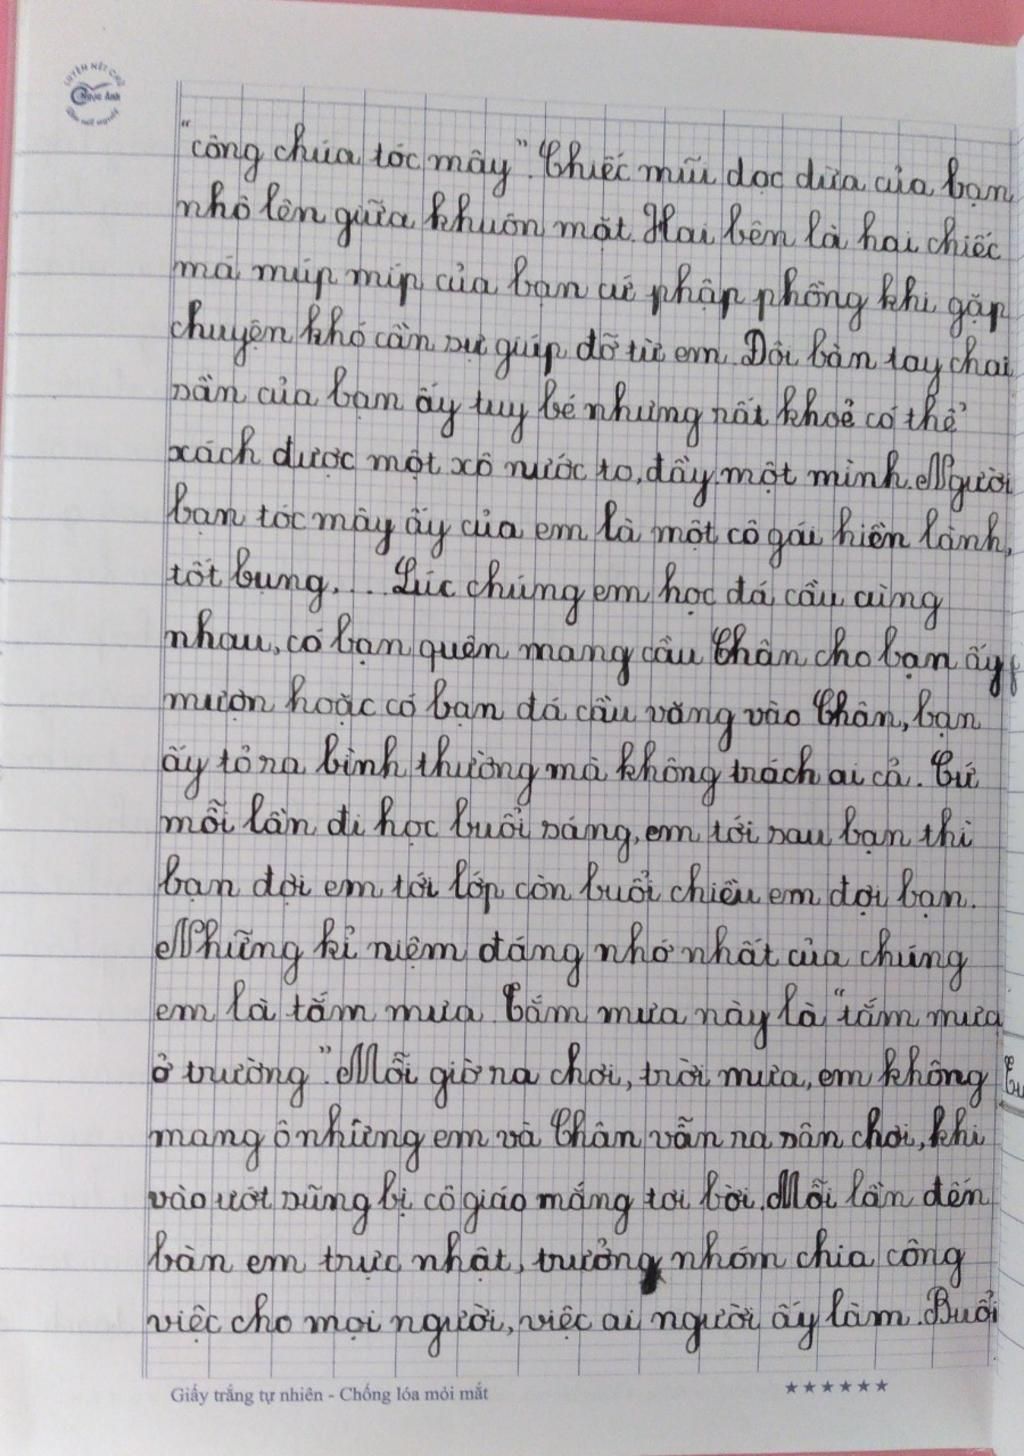 LUYỆN NÉT CHỮ
Ngọc Ánh
"công chúa tóc mây". Chiếc mũi dọc dừa của bạn
nhô lên giữa khuôn mặt. Hai bên là hai chiếc
má múp míp của bạn cứ phập phồng khi gặp
chuyện khó cần sự giúp đỡ từ em. Đôi bàn tay chai
sần của bạn ấy tuy bé nhưng rất khoẻ có thể
xách được một xô nước to, đầy một mình. Người
bạn tóc mây ấy của em là một cô gái hiền lành,
tốt bụng,... Lúc chúng em học đá cầu cùng
nhau, có bạn quên mang cầu Chân cho bạn ấy
mượn hoặc có bạn đá cầu văng vào Chân, bạn
ấy tỏ ra bình thường mà không trách ai cả. Cứ
mỗi lần đi học buổi sáng, em tới sau bạn thì
bạn đợi em tới lớp còn buổi chiều em đợi bạn.
Những kỉ niệm đáng nhớ nhất của chúng
em là tắm mưa. Tắm mưa này là "tắm mưa
ở trường". Mỗi giờ ra chơi, trời mưa, em không
mang ô nhưng em và Chân vẫn ra sân chơi, khi
vào ướt sũng bị cô giáo mắng tơi bời. Mỗi lần đến
bàn em trực nhật, trưởng nhóm chia công
việc cho mọi người, việc ai người ấy làm. Buổi
Giấy trắng tự nhiên - Chống lóa mỏi mắt
★★★★★★